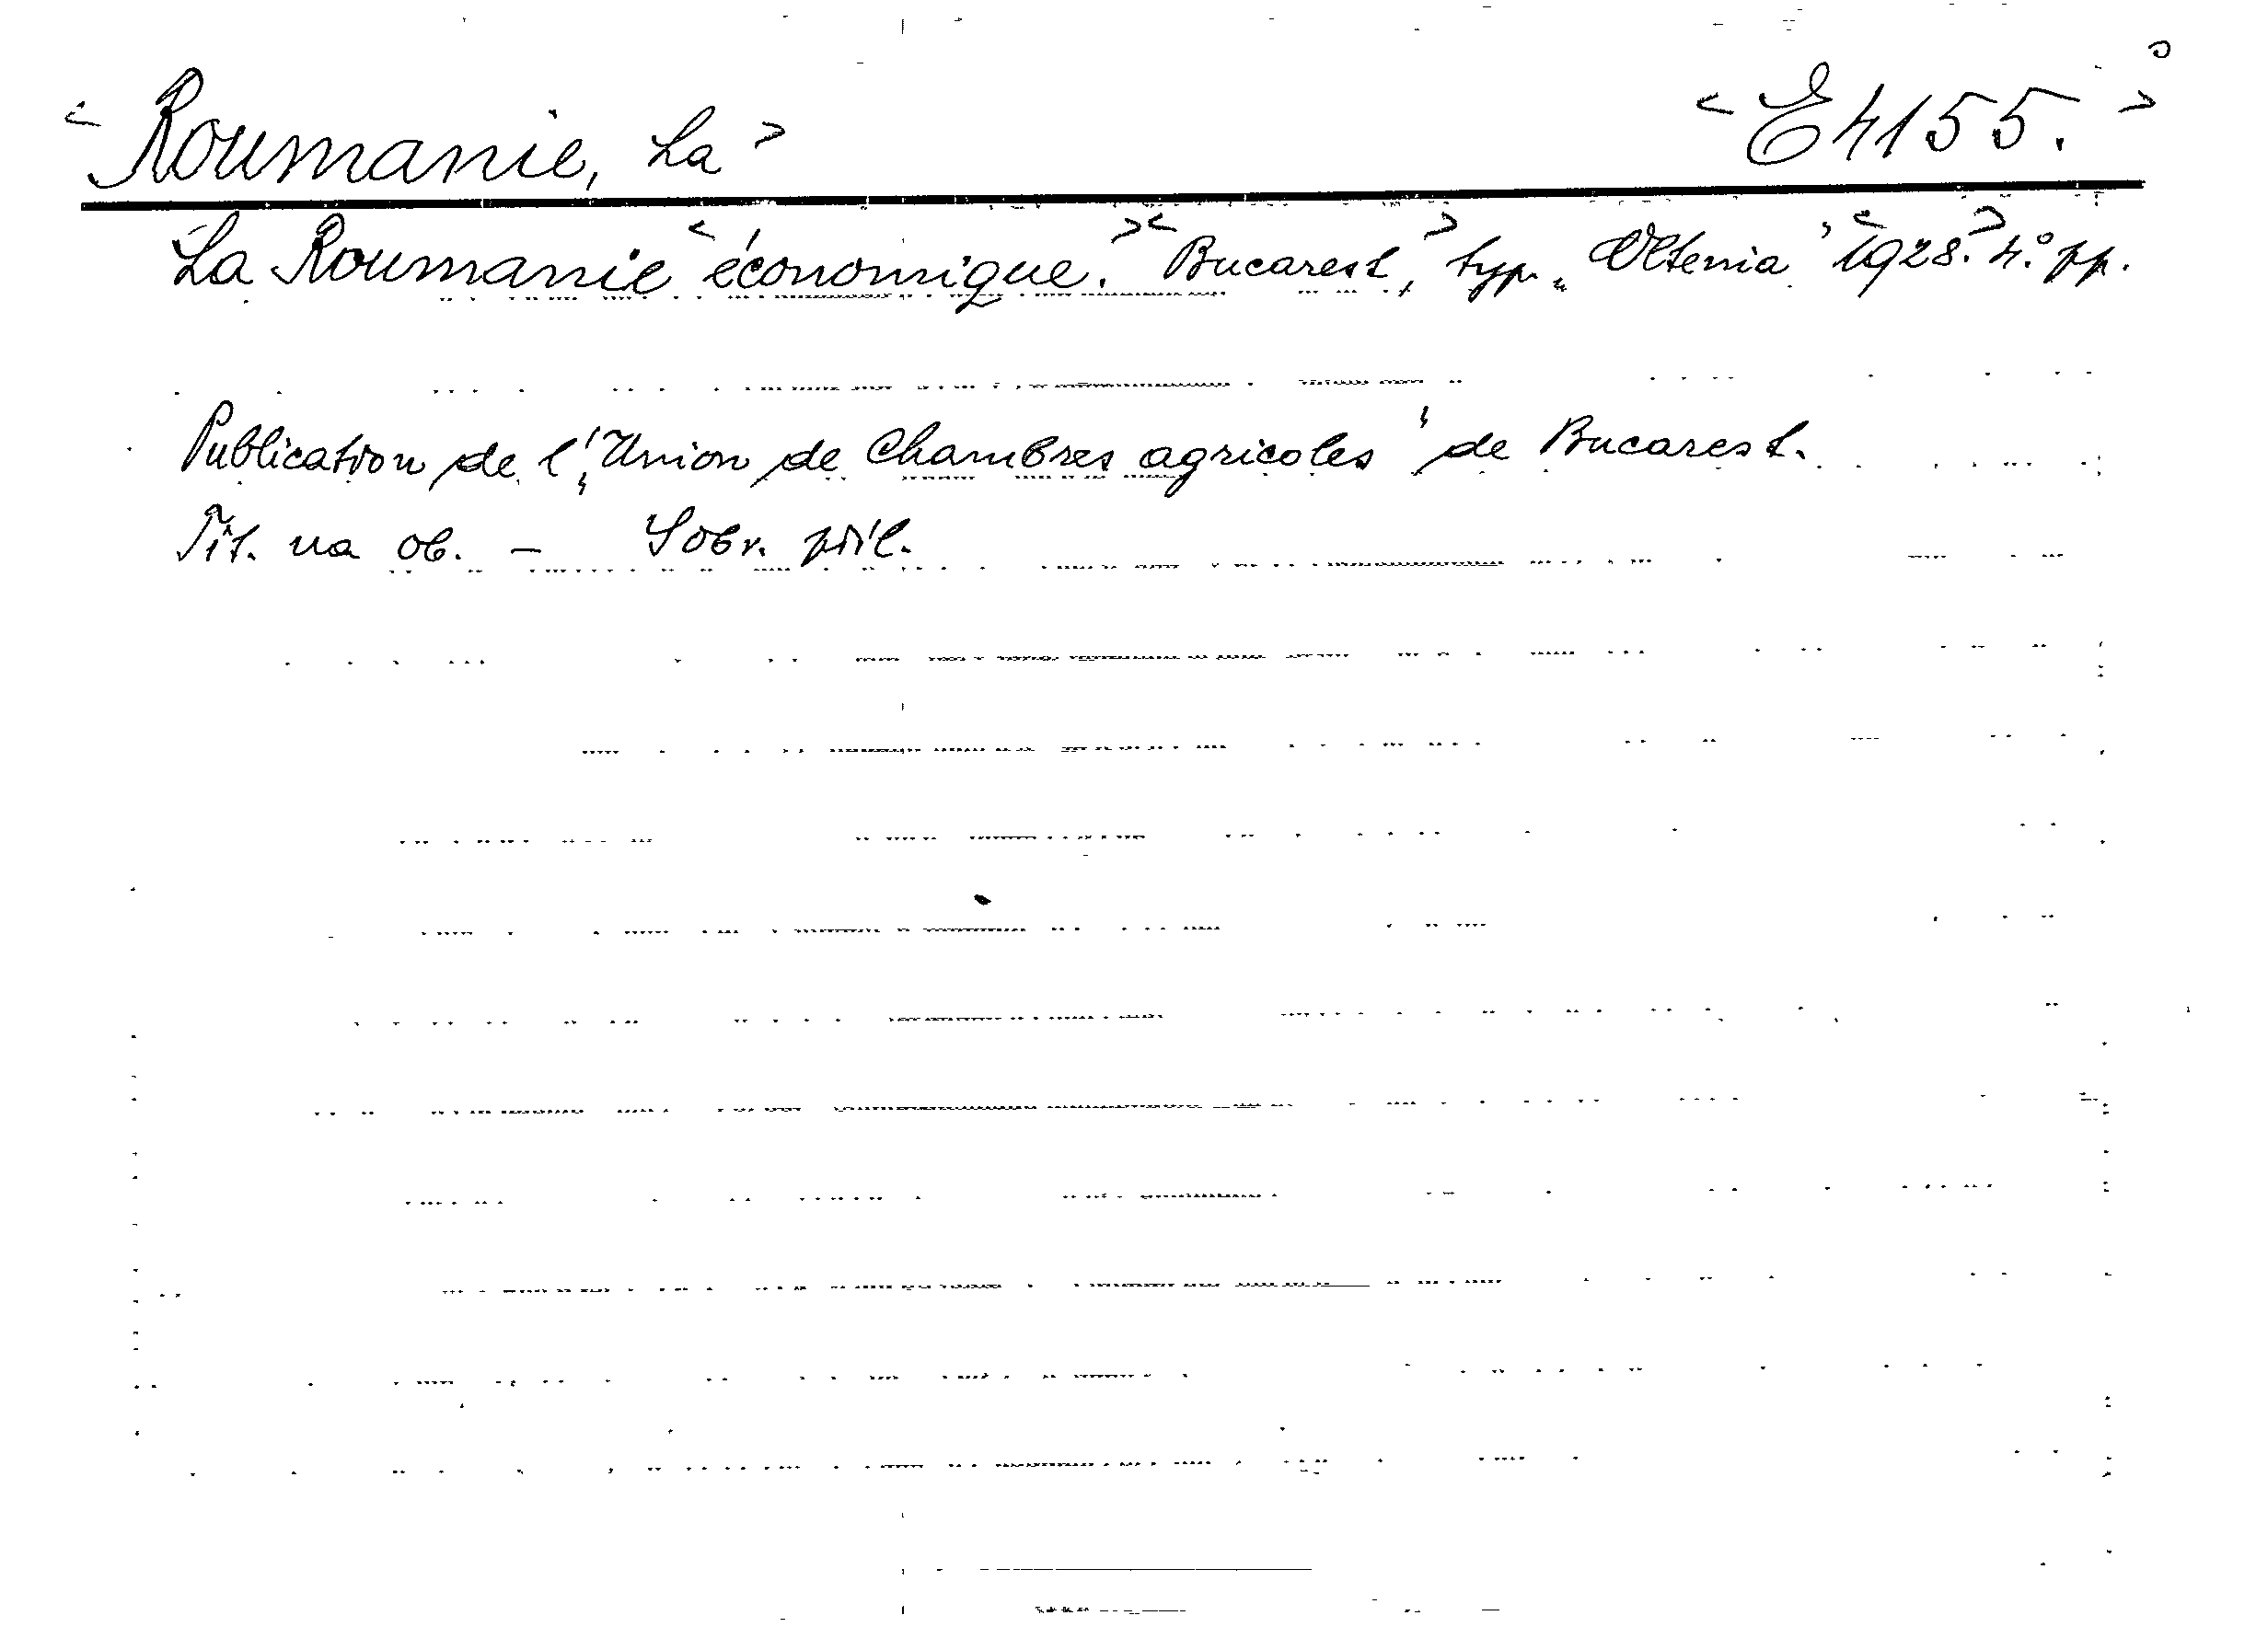 <Roumanie, La> <E4155.>
La Roumanie <économique.> <Bucarest,> typ. „Oltenia" <1928.> 4.° pp.
Publication de l'„Union de Chambres agricoles" de Bucarest.
Tit. na ob. — Sobr. příl.